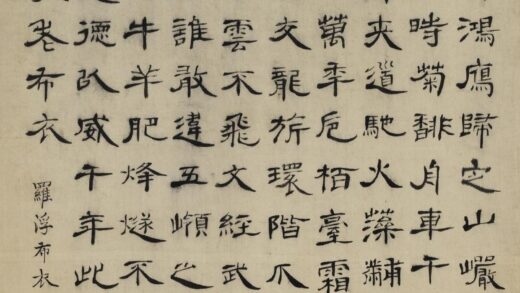 鴻鴈歸之山巖
時菊馡月車千
夾道馳火藻黼
萬年卮栢臺霜
交龍旂環階爪
雲不飛文經武
誰敢違五嶺之
牛羊肥烽燧不
德以威千年此
老布衣
羅浮布衣